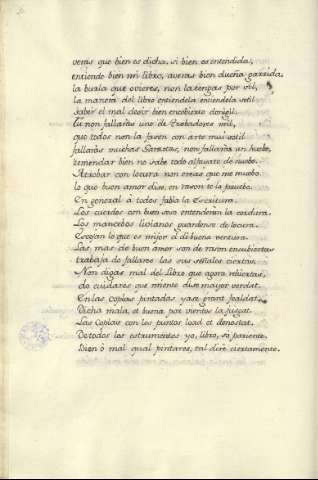 veras que bien es dicha, si bien es entendida,
entiende bien mi libro, averas bien dueña garrida.
la burla que oieres, non la tengas por vil,
la manera del libro entiendela entiendela sotil
saber el mal desir bien encobierto doñegil.
Tu non fallarás uno de Trobadores mil,
que todos non la facen con arte mui sotil
fallarás muchas Garzetas, non fallarán un huebo,
remendar bien no sabe todo alfayate de nuebo.
A trobar con locura non creas que me muebo
lo que buen amor dise, en rason te lo pruebo.
En general a todos fabla la Escritura.
Los cuerdos con buen seso entenderán la cordura.
Los mancebos livianos guardense de locura.
Escojan lo que es mijor el de buena ventura.
Las mas de buen amor son de rason encubiertas
trabaja do fallares las sus señales ciertas.
Non digas mal del Libro que agora rehiertas,
do cuidares que miente dise mayor verdat.
En las Coplas pintadas yase grant fealdat.
Dicha mala, et buena por puntos la jusgat.
Las Coplas con los puntos load et denostat.
De todos los estrumentos yo, libro, só pariente.
Bien ó mal qual pintares, tal diré ciertamente.